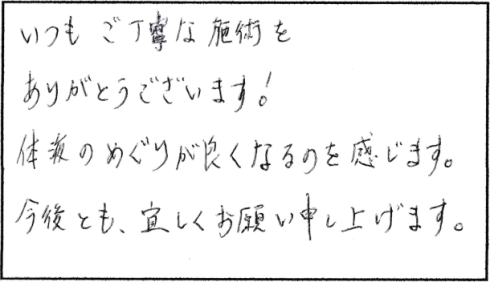 いつもご丁寧な施術を
ありがとうございます!
体液のめぐりが良くなるのを感じます。
今後とも、宜しくお願い申し上げます。